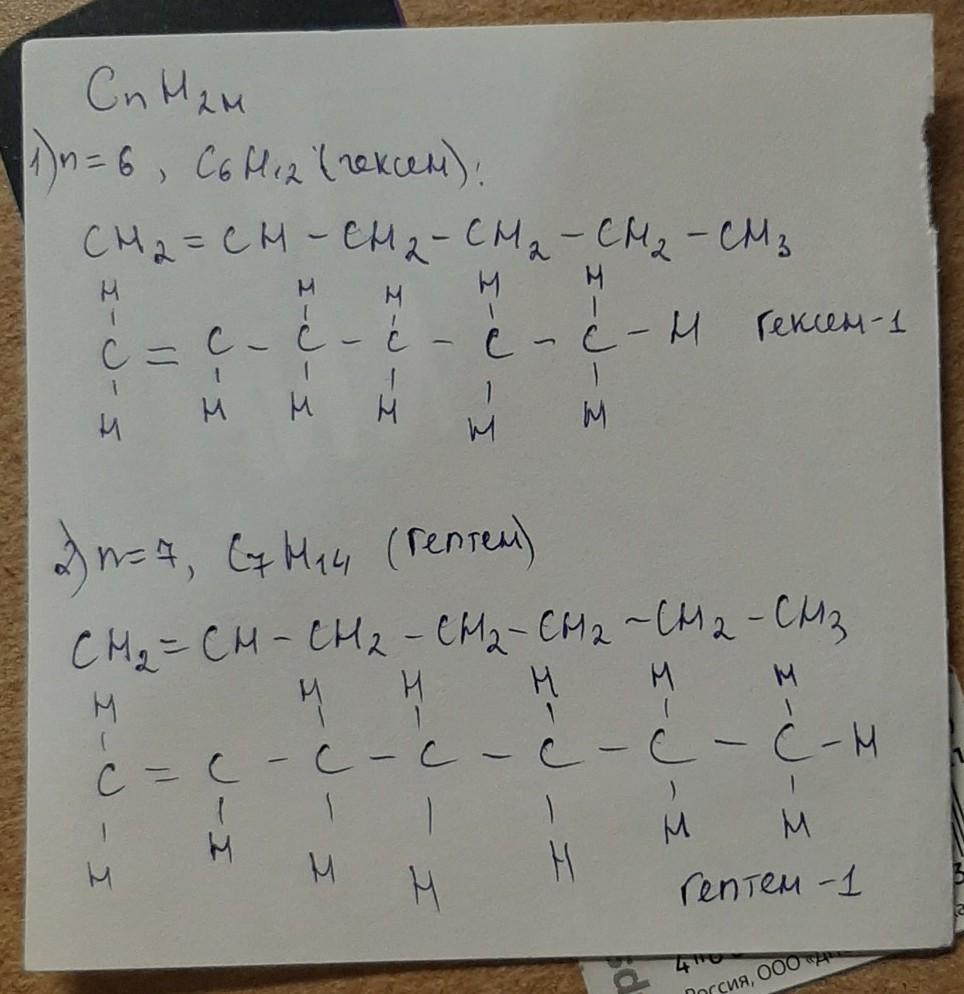 CnH2н
1) n=6, C6H12 (гексен):
CH2=CH-CH2-CH2-CH2-CH3
H H H H H
C = C - C - C - C - C - H гексен-1
H H H H H H
2) n=7, C7H14 (гептен)
CH2=CH-CH2-CH2-CH2-CH2-CH3
H H H H H H
C = C - C - C - C - C - C - H
H H H H H H H
гептен-1
ps
Россия, ООО «